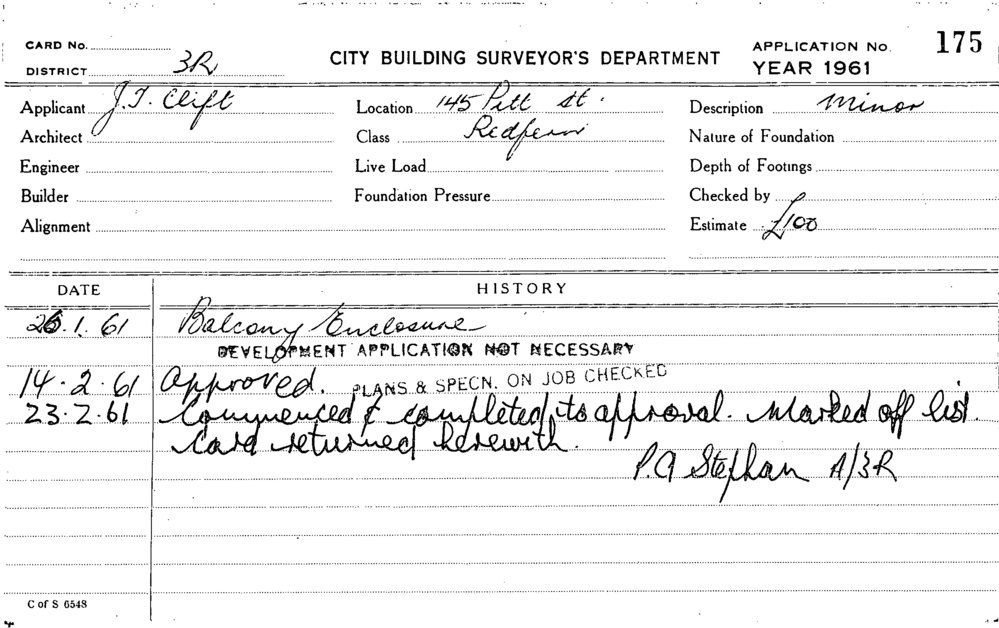 CARD No.
DISTRICT 3R
CITY BUILDING SURVEYOR'S DEPARTMENT
APPLICATION No. 175
YEAR 1961
Applicant J.T. Clift
Location 145 Pitt St.
Description Minor
Architect
Class Redfern
Nature of Foundation
Engineer
Live Load
Depth of Footings
Builder
Foundation Pressure
Checked by
Alignment
Estimate £100
DATE HISTORY
.1.61 Balcony Enclosure
DEVELOPMENT APPLICATION NOT NECESSARY
14.2.61 Approved. PLANS & SPECN. ON JOB CHECKED
23.2.61 Commenced & completed to approval. Marked off list.
Card returned herewith.
P.A Stephan A/3R
C of S 6548